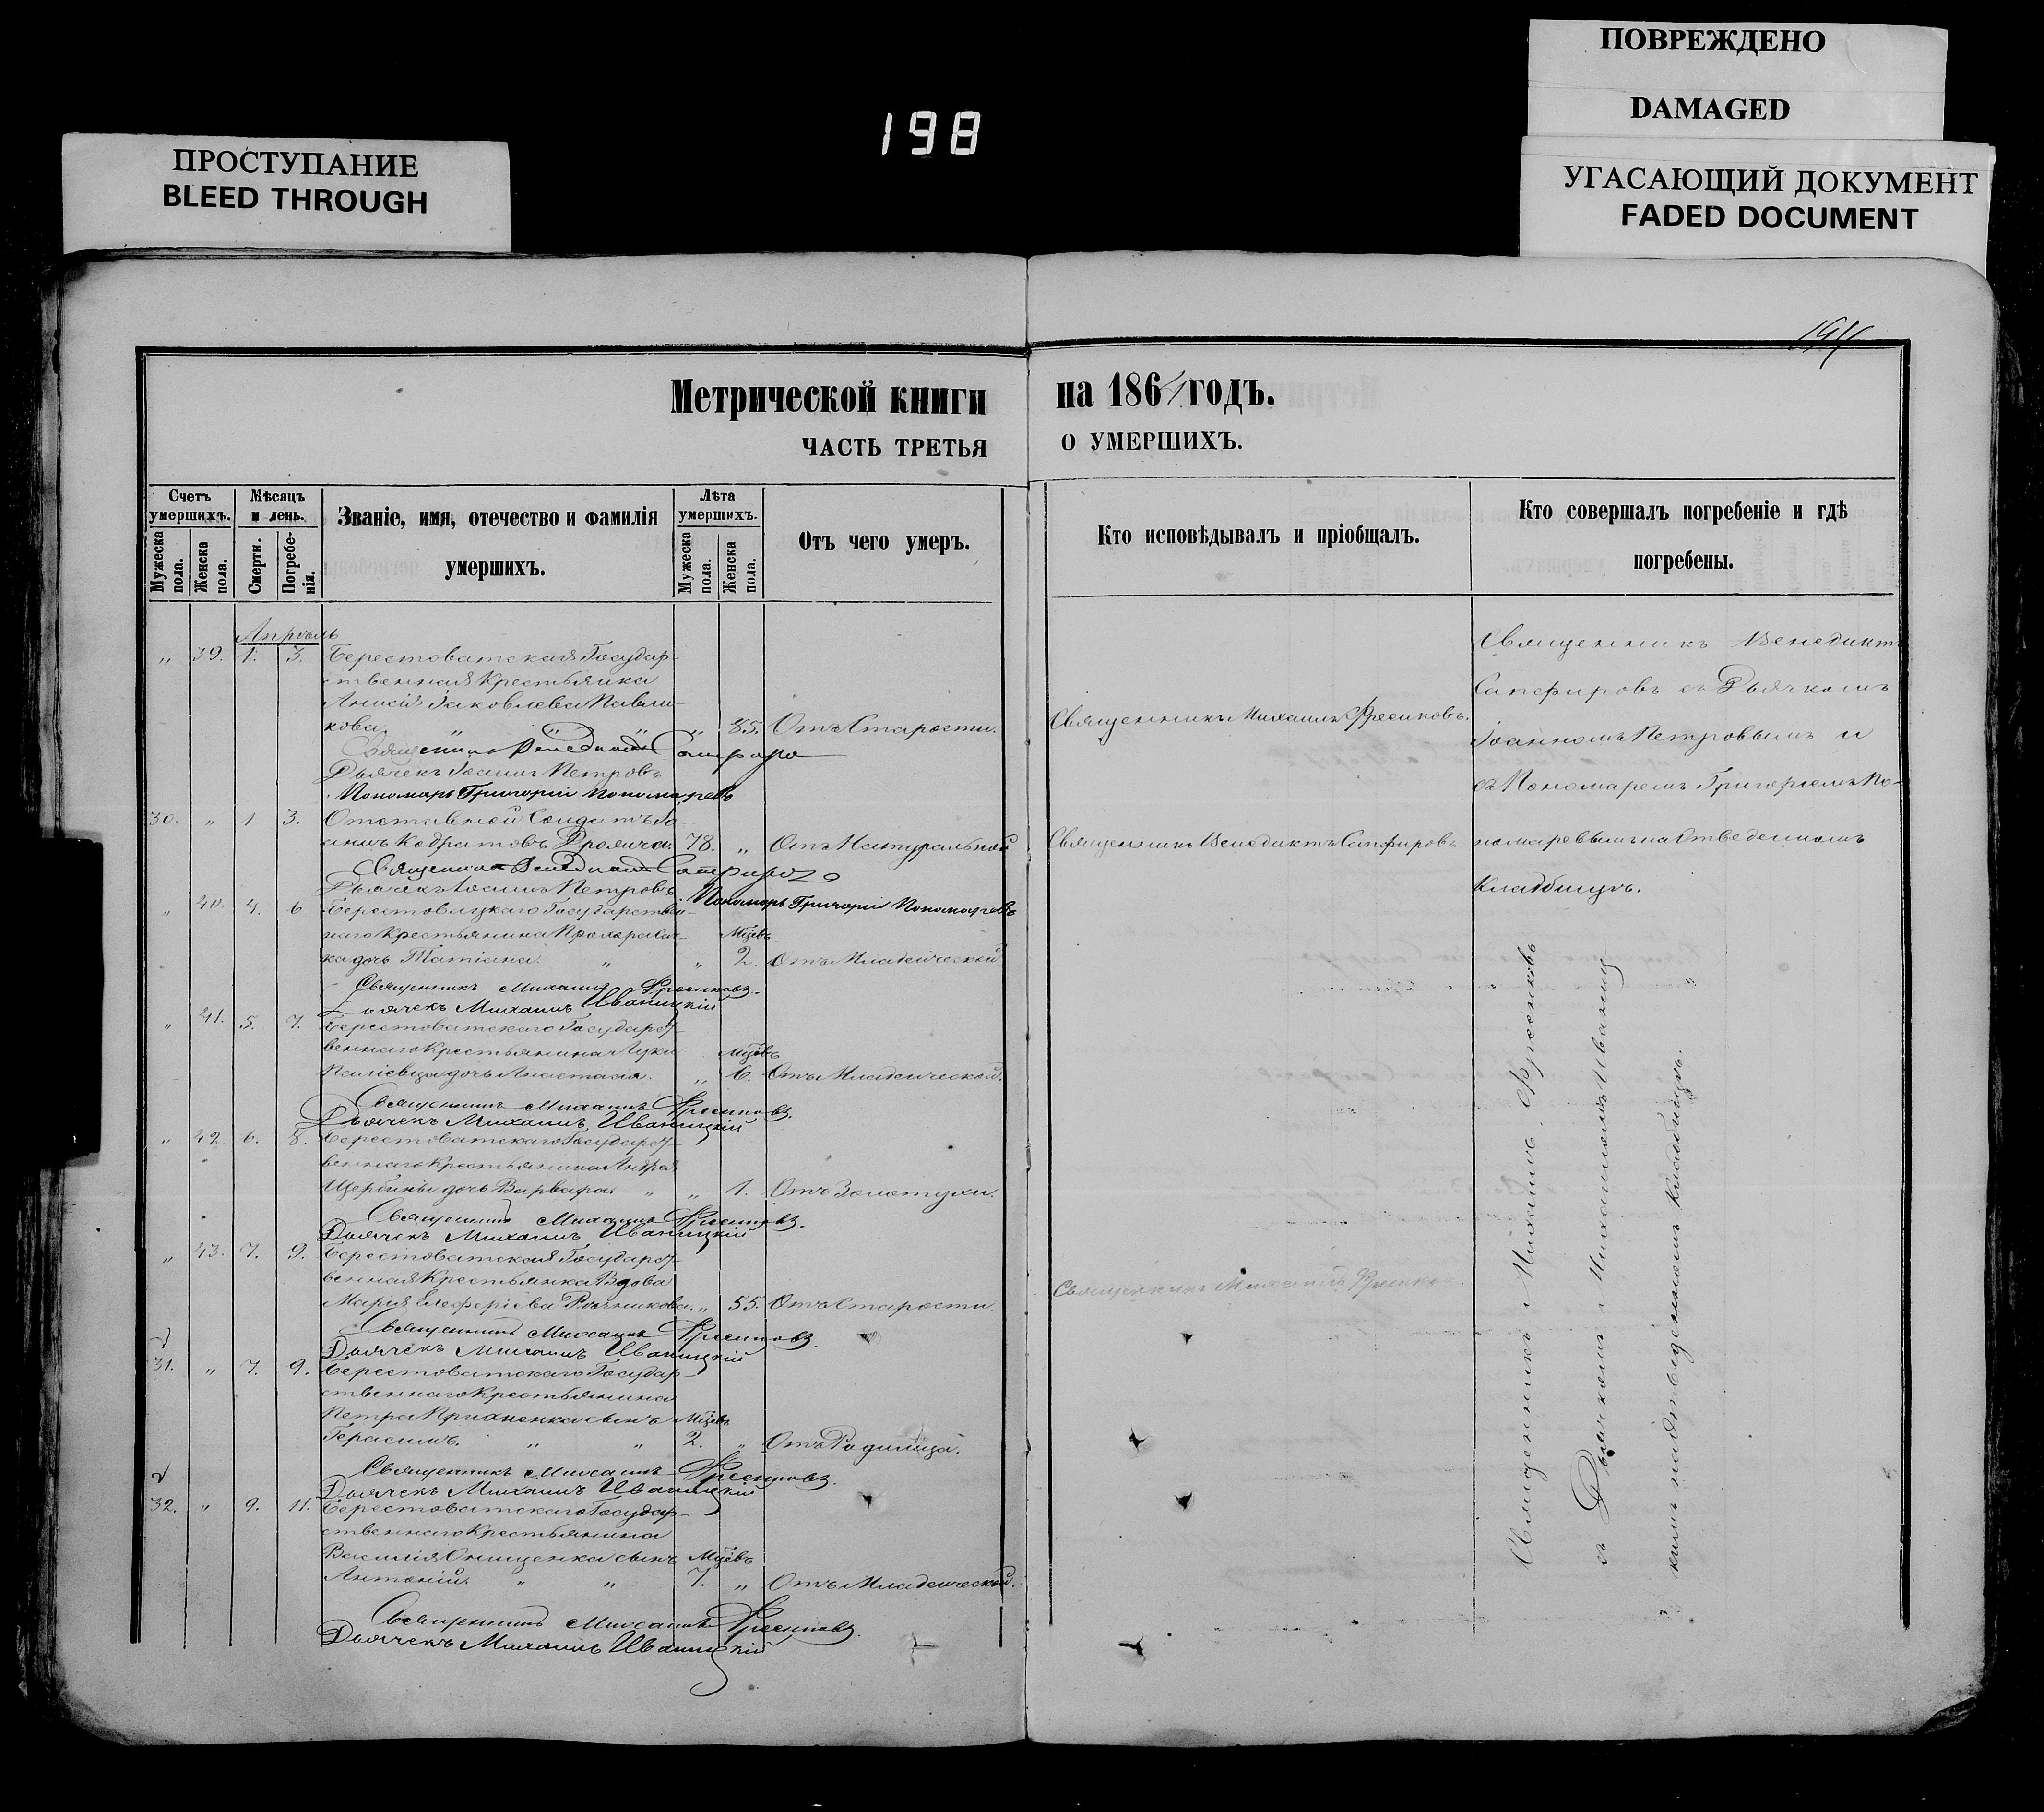 ПОВРЕЖДЕНО
DAMAGED
198
ПРОСТУПАНИЕ
BLEED THROUGH
УГАСАЮЩИЙ ДОКУМЕНТ
FADED DOCUMENT
Метрической книги на 1864 годъ.
ЧАСТЬ ТРЕТЬЯ О УМЕРШИХЪ.
Счетъ умершихъ.
Мужеска пола.
Женска пола.
Мѣсяцъ и день.
Смерти.
Погребенія.
Званіе, имя, отечество и фамилія умершихъ.
Лѣта умершихъ.
Мужеска пола.
Женска пола.
Отъ чего умеръ.
Кто исповѣдывалъ и пріобщалъ.
Кто совершалъ погребеніе и гдѣ погребены.
Апрѣль
„ 39. 1. 3. Берестоватская Государ-
ственная Крестьянка
Анисія Яковлева Павли-
кова „ „ „ „ 85. Отъ Старости. Священникъ Михаилъ Фресенковъ.
Священникъ Венедиктъ Сапфировъ
Дьячекъ Іоаннъ Петровъ
Пономарь Григорій Пономаревъ
30. „ 1 3. Отставной Солдатъ Іо-
аннъ Кодратовъ 78. „ Отъ Натуральной Священникъ Венедиктъ Сапфировъ
Священникъ Венедиктъ Сапфировъ
Дьячекъ Іоаннъ Петровъ
Пономарь Григорій Пономаревъ
„ 40. 4. 6 Берестоватскаго Государствен-
наго Крестьянина Прохора
дочь Татіана. „ „ Мцѣвъ 2. Отъ Младенческой
Священникъ Михаилъ Фресенковъ.
Дьячекъ Михаилъ Иваницкій
„ 41. 5. 7. Берестоватскаго Государст-
веннаго Крестьянина Луки
дочь Анастасія. „ Мцѣвъ 6. Отъ Младенческой.
Священникъ Михаилъ Фресенковъ.
Дьячекъ Михаилъ Иваницкій
„ 42 6. 8. Берестоватскаго Государст-
веннаго Крестьянина Андрея
Щербины дочь Варвара „ „ 1. Отъ Золотухи.
Священникъ Михаилъ Фресенковъ.
Дьячекъ Михаилъ Иваницкій
„ 43. 7. 9. Берестоватская Государст-
венная Крестьянка Вдова
Марія Елеферіева „ 55. Отъ Старости. Священникъ Михаилъ
Священникъ Михаилъ Фресенковъ.
Дьячекъ Михаилъ Иваницкій
31. „ 7. 9. Берестоватскаго Государ-
ственнаго Крестьянина
Петра сынъ Мцѣвъ
Герасимъ. „ „ 2. „ Отъ Родимца.
Священникъ Михаилъ Фресенковъ.
Дьячекъ Михаилъ Иваницкій
32. „ 9. 11. Берестоватскаго Государ-
ственнаго Крестьянина
Василія Онищенка сынъ Мцѣвъ
Антоній. „ „ 7. „ Отъ Младенческой.
Священникъ Михаилъ Фресенковъ.
Дьячекъ Михаилъ Иваницкій
Священникъ Венедиктъ
Сапфировъ съ Дьячкомъ
Іоанномъ Петровымъ и
съ Пономаремъ Григоріемъ По-
номаревымъ на Отведенномъ
Кладбищѣ.
Священникъ Михаилъ Фресенковъ
съ Дьячкомъ Михаиломъ Иваниц-
кимъ на Отведенномъ Кладбищѣ.